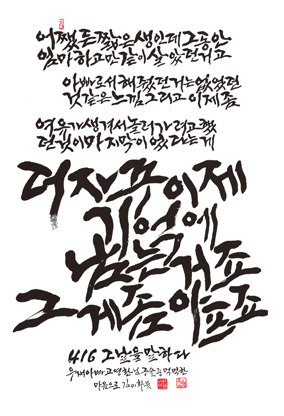 어쨌든 짧은 생인데 그동안
엄마하고만 같이 살았던거고
아빠로서 해줬던거는 없었던
것 같은 느낌 그리고 이제 좀
여유가 생겨서 놀러가려고 했
던 것이 마지막이었다는게
더 자꾸 이제
기억에
남는 거죠
그게 좀 아프죠
416 그날을 말하다
우재아빠 고영환님 구술을 먹먹한
마음으로